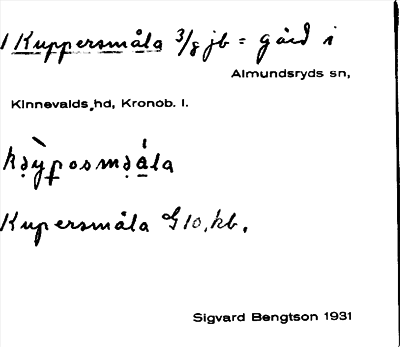 Kuppersmåla 3/8 jb = gård i
Almundsryds sn,
Kinnevalds hd, Kronob. l.
Kupersmåla G 10, kb.
Sigvard Bengtson 1931